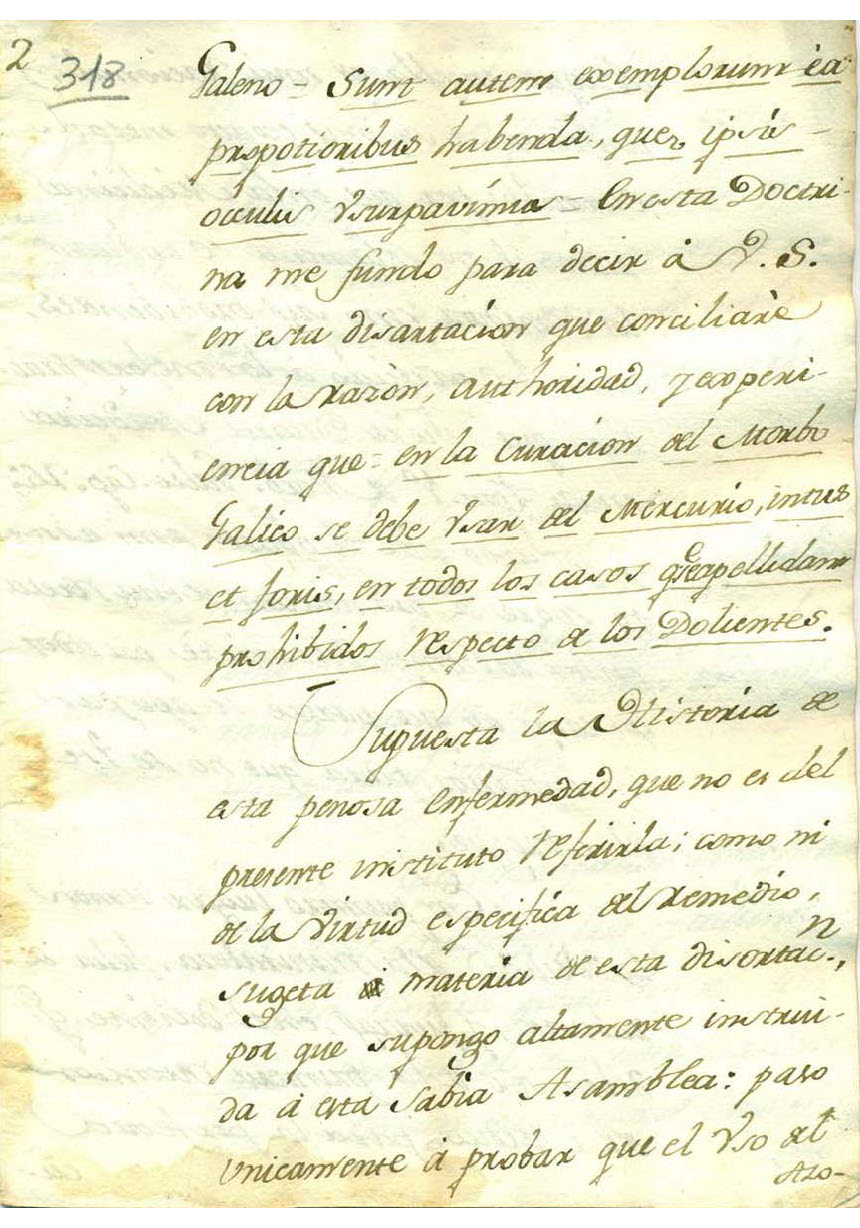 2
318
Galeno = Sunt autem exemplorum èa
propotioribus habenda, quæ ipsis
occulis vsurpavimus = En esta Doctri-
na me fundo para decir à V. S.
en esta disartacion que conciliarè
con la razòn, authoridad, y experi-
encia que = en la Curacion del Morbo
Galico se debe vsar del Mercurio, intus
et foris, en todos los casos q.e se apellidan
prohibidos respecto de los Dolientes.
Supuesta la Historia de
esta penosa enfermedad, que no es del
presente instituto referirla; como ni
de la virtud especifica del remedio,
sugeta à materia de esta disortac.n,
por que supongo altamente instrui-
da à esta Sabia Asamblea: paso
unicamente à probar que el vso del
Azo-